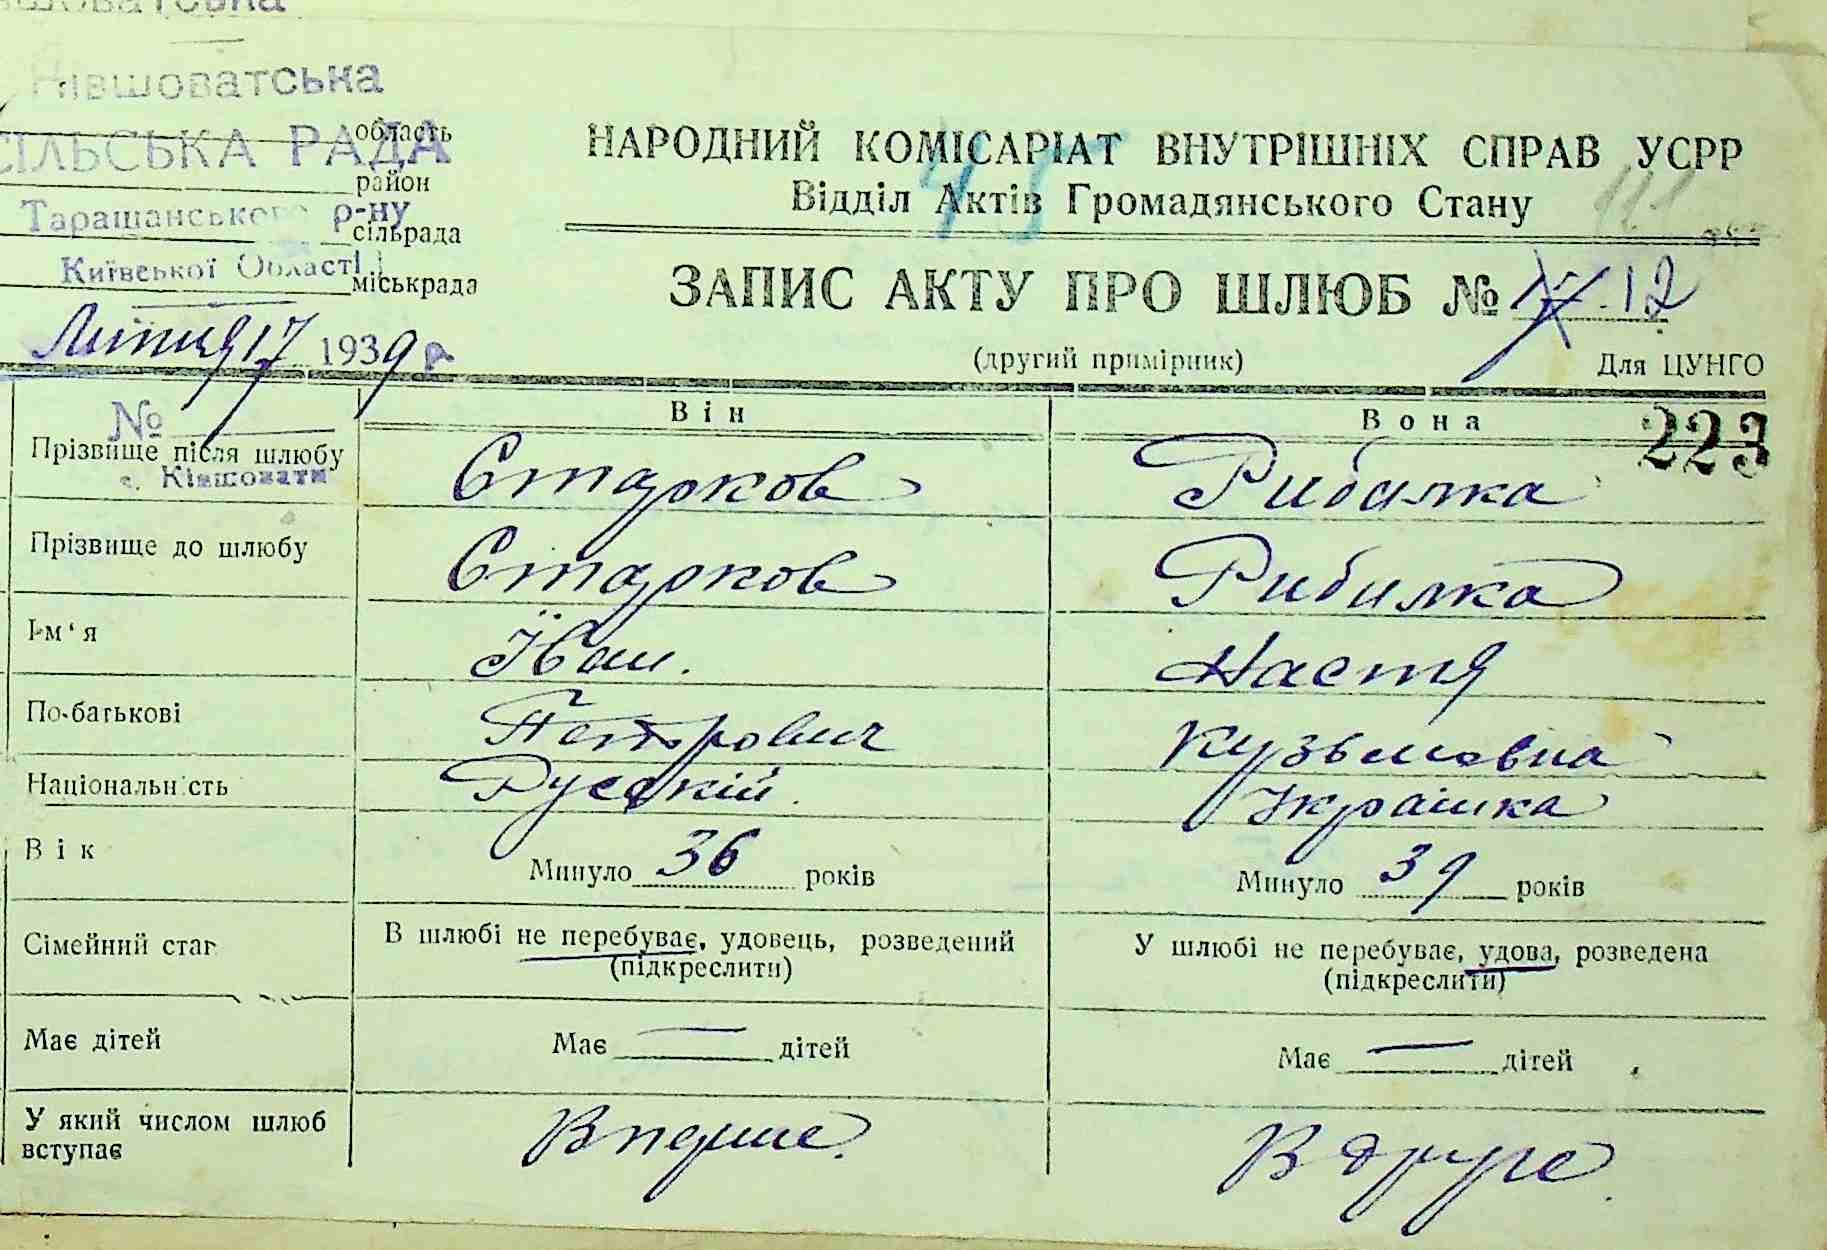 Ківшоватська
область
СІЛЬСЬКА РАДА
район
Таращанського р-ну
сільрада
Київської Області
міськрада
Липня 17 1939 р
НАРОДНИЙ КОМІСАРІАТ ВНУТРІШНІХ СПРАВ УСРР
Відділ Актів Громадянського Стану
45
ЗАПИС АКТУ ПРО ШЛЮБ № 12
(другий примірник)
Для ЦУНГО
№
Він
Вона
223
Прізвище після шлюбу
с. Ківшовати
Старков
Рибалка
Прізвище до шлюбу
Старков
Рибалка
Ім'я
Іван.
Настя
По-батькові
Петрович
Кузьмовна
Національність
Руський
Українка
Вік
Минуло 36 років
Минуло 39 років
Сімейний стан
В шлюбі не перебуває, удовець, розведений
(підкреслити)
У шлюбі не перебуває, удова, розведена
(підкреслити)
Має дітей
Має — дітей
Має — дітей
У який числом шлюб
вступає
Вперше.
Вдруге.